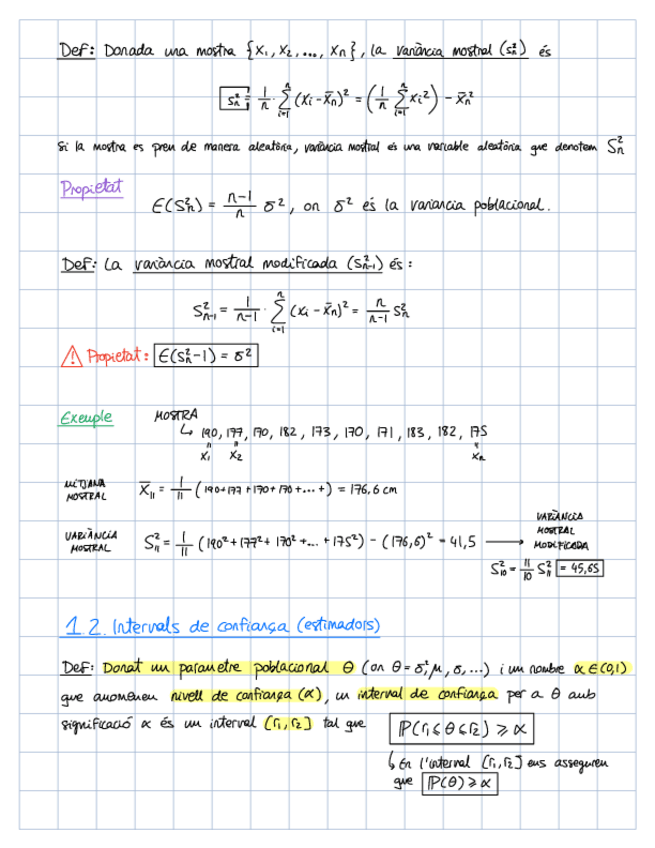 Def: Donada una mostra {x₁, x₂, ..., xₙ}, la variància mostral (sₙ²) és
sₙ² = 1/n · Σᵢ₌₁ⁿ (xᵢ - x̄ₙ)² = (1/n Σᵢ₌₁ⁿ xᵢ²) - x̄ₙ²
Si la mostra es pren de manera aleatòria, variància mostral és una variable aleatòria que denotem Sₙ²
Propietat
E(Sₙ²) = n-1/n σ², on σ² és la variancia poblacional.
Def: La variància mostral modificada (S²ₙ₋₁) és:
S²ₙ₋₁ = 1/n-1 · Σᵢ₌₁ⁿ (xᵢ - x̄ₙ)² = n/n-1 Sₙ²
⚠ Propietat: E(Sₙ²-1) = σ²
Exemple MOSTRA
↳ 190, 177, 170, 182, 173, 170, 171, 183, 182, 175
x₁ x₂ xₙ
MITJANA MOSTRAL X̄₁₁ = 1/11 (190+177+170+170+...+) = 176,6 cm
VARIÀNCIA MOSTRAL S₁₁² = 1/11 (190² + 177² + 170² + ... + 175²) - (176,6)² = 41,5 → VARIÀNCIA MOSTRAL MODIFICADA
S₁₀² = 11/10 S₁₁² = 45,65
1.2. Intervals de confiança (estimadors)
Def: Donat un parametre poblacional θ (on θ = σ², μ, σ, ...) i un nombre α ∈ (0,1)
que anomenem nivell de confiança (α), un interval de confiança per a θ amb
significació α és un interval [r₁, r₂] tal que P(r₁ ≤ θ ≤ r₂) ≥ α
↳ En l'interval [r₁, r₂] ens asseguren
que P(θ) ≥ α